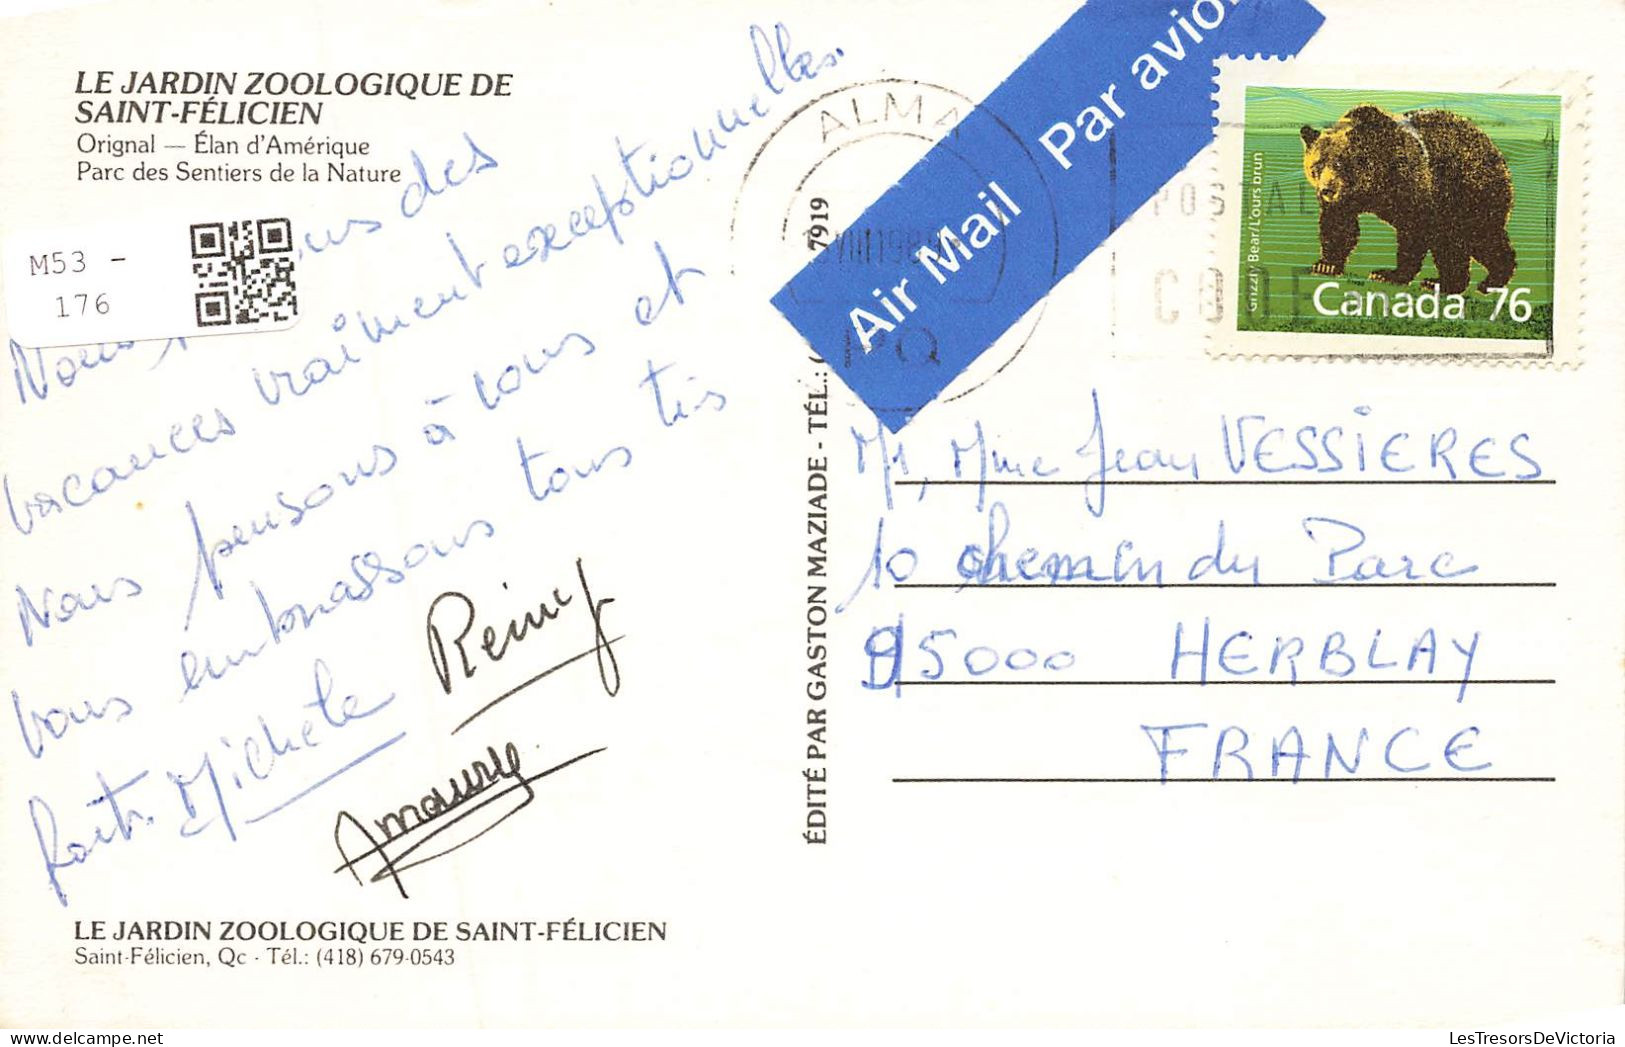 LE JARDIN ZOOLOGIQUE DE
SAINT-FÉLICIEN
Orignal — Élan d'Amérique
Parc des Sentiers de la Nature
M53 -
176
Nous des
vacances vraiment exceptionnelles.
Nous pensons à vous et
vous embrassons tous très
fort. Michèle Rémy
Amaury
LE JARDIN ZOOLOGIQUE DE SAINT-FÉLICIEN
Saint-Félicien, Qc - Tél.: (418) 679-0543
ÉDITÉ PAR GASTON MAZIADE - TÉL.: 7919
Air Mail Par avion
ALMA
PQ
POSTAL
CODE
Grizzly Bear/L'ours brun
Canada 76
M, Mme Jean VESSIERES
10 chemin du Parc
95000 HERBLAY
FRANCE
LesTresorsDeVictoria.com